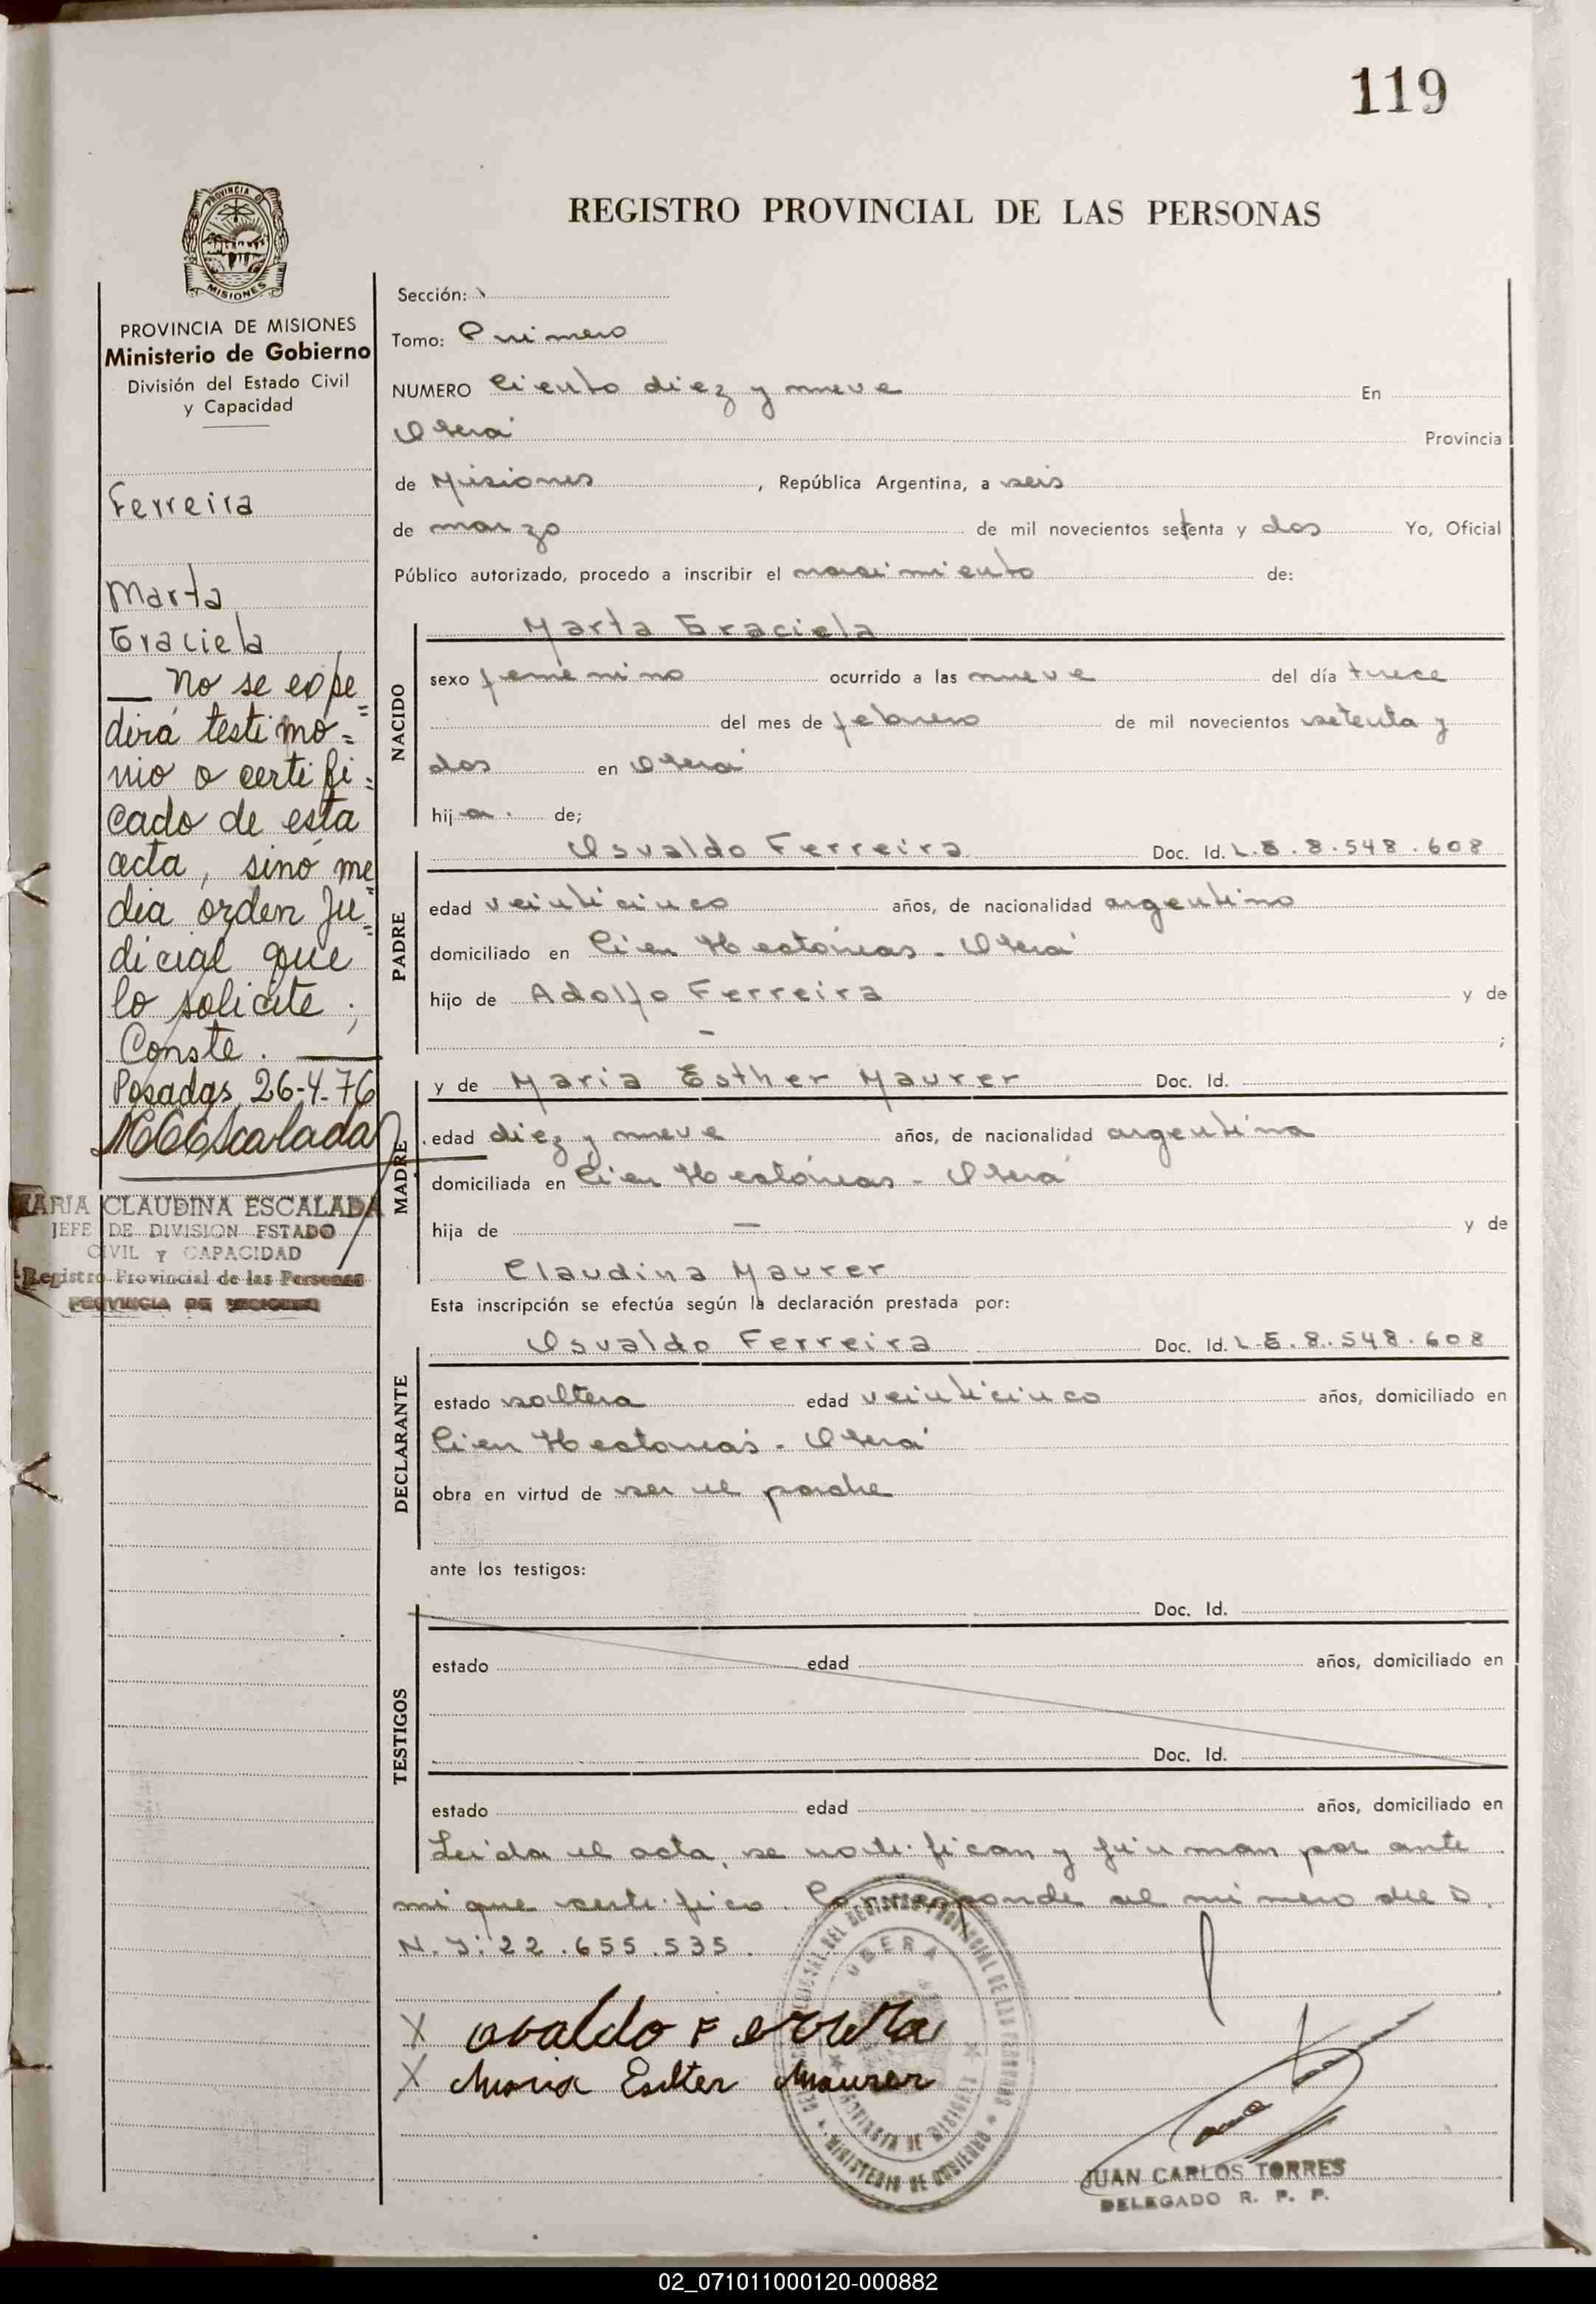 119
REGISTRO PROVINCIAL DE LAS PERSONAS
PROVINCIA DE
MISIONES
PROVINCIA DE MISIONES
Ministerio de Gobierno
División del Estado Civil
y Capacidad
Ferreira
Marta
Graciela
— No se expe=
dirá testimo=
nio o certifi=
cado de esta
acta, sinó me=
dia orden Ju=
dicial que
lo solicite;
Conste. —
Posadas, 26-4-76
MCEscalada
MARIA CLAUDINA ESCALADA
JEFE DE DIVISION ESTADO
CIVIL Y CAPACIDAD
Registro Provincial de las Personas
PROVINCIA DE MISIONES
Sección:
Tomo: Primero
NUMERO Ciento diez y nueve En
Oberá Provincia
de Misiones, República Argentina, a seis
de marzo de mil novecientos setenta y dos Yo, Oficial
Público autorizado, procedo a inscribir el nacimiento de:
NACIDO
Marta Graciela
sexo femenino ocurrido a las nueve del día trece
del mes de febrero de mil novecientos setenta y
dos en Oberá
hija. de;
PADRE
Osvaldo Ferreira Doc. Id. L.E. 8.548.608
edad veinticinco años, de nacionalidad argentino
domiciliado en Cien Hectáreas - Oberá
hijo de Adolfo Ferreira y de
— ;
MADRE
y de Maria Esther Maurer Doc. Id.
edad diez y nueve años, de nacionalidad argentina
domiciliada en Cien Hectáreas - Oberá
hija de — y de
Claudina Maurer
Esta inscripción se efectúa según la declaración prestada por:
DECLARANTE
Osvaldo Ferreira Doc. Id. L.E. 8.548.608
estado soltera edad veinticinco años, domiciliado en
Cien Hectareas - Oberá
obra en virtud de ser el padre
ante los testigos:
TESTIGOS
Doc. Id.
estado edad años, domiciliado en
Doc. Id.
estado edad años, domiciliado en
Leida el acta, se notifican y firman por ante
mi que certifico. Corresponde al número de D.
N.I: 22.655.535.
X Osvaldo Ferreira
X Maria Esther Maurer
DEL REGISTRO PROVINCIAL DE LAS PERSONAS
OBERA
PROVINCIA DE MISIONES
MINISTERIO DE GOBIERNO
JUAN CARLOS TORRES
DELEGADO R. P. P.
02_071011000120-000882